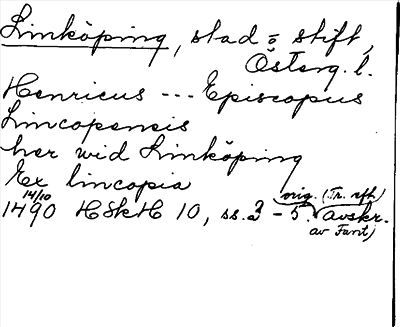 Linköping, stad o stift,
Österg. l.
Henricus --- Episcopus
Lincopensis
her wid Linköping
Ex lincopia
14/10 orig. (Tr.
1490 HSkH 10, ss. 2 - 5. avskr.
av Fant)